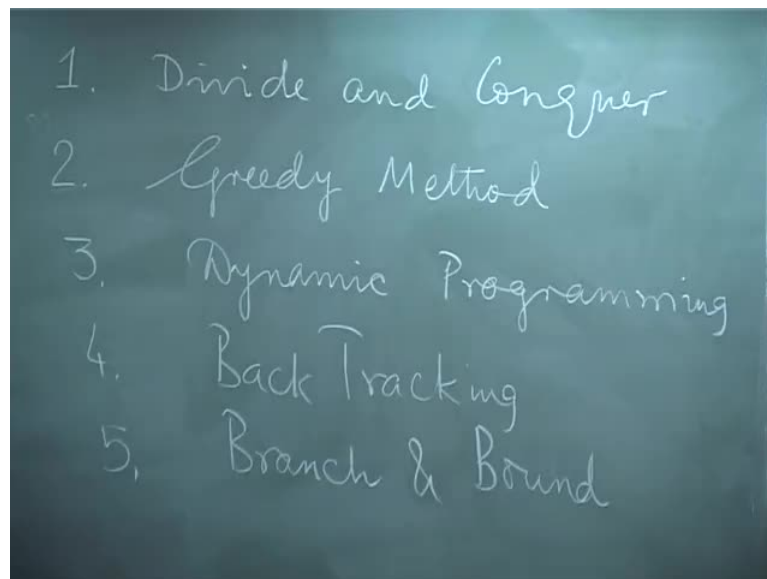 1. Divide and Conquer
2. Greedy Method
3. Dynamic Programming
4. Back Tracking
5. Branch & Bound